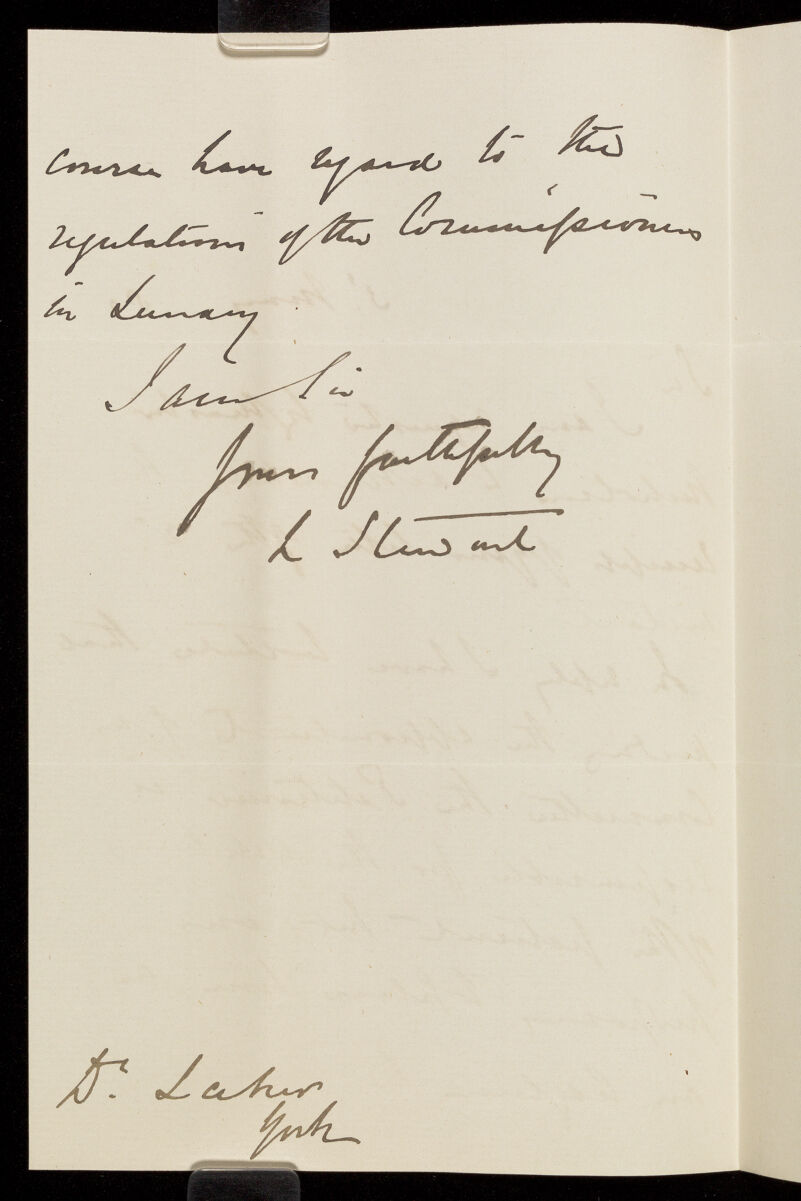 course have regard to the
regulations of the Commissioners
in Lunacy.
I am Sir
Yours faithfully
L Stewart
Dr.
York